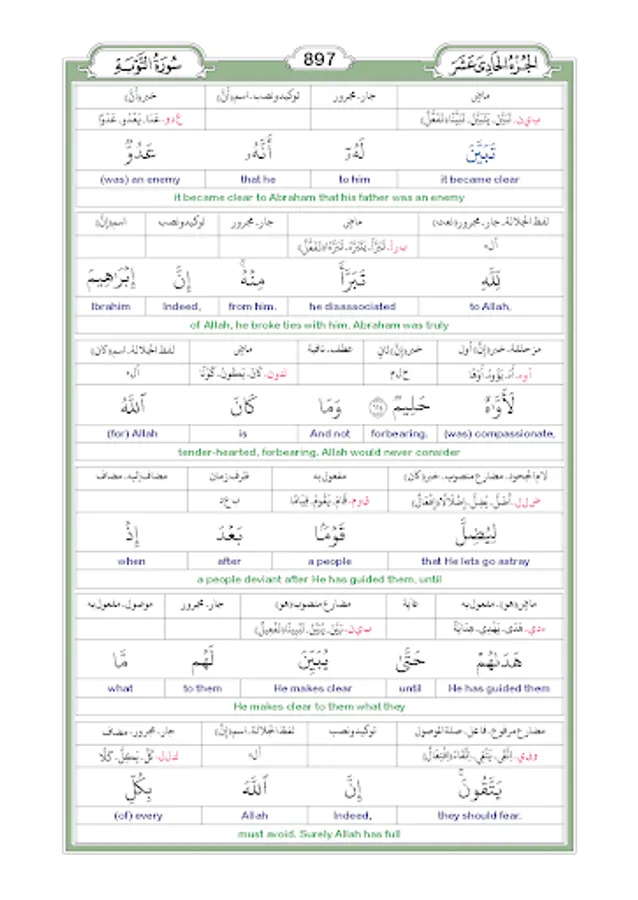 الجزء الحادي عشر 897 سورة التوبة
ماضٍ جار۔مجرور توكيد ونصب۔اسم(أنّ) خبر(أنّ)
ب ي ن۔ تَبَيَّنَ، يَتَبَيَّنُ، تَبَيُّنًا(تَفَعُّلٌ) ع د و۔ عَدَا، يَعْدُو، عَدْوًا
تَبَيَّنَ لَهُۥٓ أَنَّهُۥ عَدُوٌّ
it became clear to him that he (was) an enemy
it became clear to Abraham that his father was an enemy
لفظ الجلالة۔جار۔مجرور(نعت) ماضٍ جار۔مجرور توكيد ونصب اسم(إنّ)
أ ل ه ب ر أ۔ تَبَرَّأَ، يَتَبَرَّأُ، تَبَرُّءًا(تَفَعُّلٌ)
لِّلَّهِ تَبَرَّأَ مِنْهُ ۚ إِنَّ إِبْرَٰهِيمَ
to Allah, he disassociated from him. Indeed, Ibrahim
of Allah, he broke ties with him. Abraham was truly
مزحلقة۔خبر(إنّ) أول خبر(إنّ) ثانٍ عطف۔نافية ماضٍ لفظ الجلالة۔اسم(كان)
ح ل م ك و ن۔ كَانَ، يَكُونُ، كَوْنًا أ ل ه
لَأَوَّٰهٌ حَلِيمٌ ١١٤ وَمَا كَانَ ٱللَّهُ
(was) compassionate, forbearing. And not is (for) Allah
tender-hearted, forbearing. Allah would never consider
لام الجحود۔مضارع منصوب۔خبر(كان) مفعول به ظرف زمان مضاف إليه۔مضاف
ض ل ل۔ أَضَلَّ، يُضِلُّ، إِضْلَالًا(إِفْعَالٌ) ق و م۔ قَامَ، يَقُومُ، قِيَامًا ب ع د
لِيُضِلَّ قَوْمًۢا بَعْدَ إِذْ
that He lets go astray a people after when
a people deviant after He has guided them, until
ماضٍ(هو)۔مفعول به غاية مضارع منصوب(هو) جار۔مجرور موصول۔مفعول به
ه د ي۔ هَدَى، يَهْدِي، هِدَايَةً ب ي ن۔ بَيَّنَ، يُبَيِّنُ، تَبْيِينًا(تَفْعِيلٌ)
هَدَىٰهُمْ حَتَّىٰ يُبَيِّنَ لَهُم مَّا
He has guided them until He makes clear to them what
He makes clear to them what they
مضارع مرفوع۔فاعل۔صلة الموصول توكيد ونصب لفظ الجلالة۔اسم(إنّ) جار۔مجرور۔مضاف
و ق ي۔ اِتَّقَى، يَتَّقِي، اِتِّقَاءً(اِفْتِعَالٌ) أ ل ه ك ل ل۔ كَلَّ، يَكِلُّ، كَلًّا
يَتَّقُونَ ۚ إِنَّ ٱللَّهَ بِكُلِّ
they should fear. Indeed, Allah (of) every
must avoid. Surely Allah has full